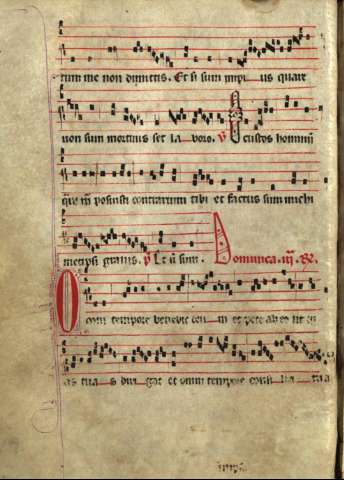 tum me non dimittis. Et si sum impi us quare
non sum mortuus set la boro. V O custos hominū
posuisti contrarium tibi et factus sum michi
metipsi grauis. V Et si sum.
Dominica. iii.
O mni tempore benedic deum et pete ab eo ut ui
as tua s diri gat et omni tempore consi lia tua